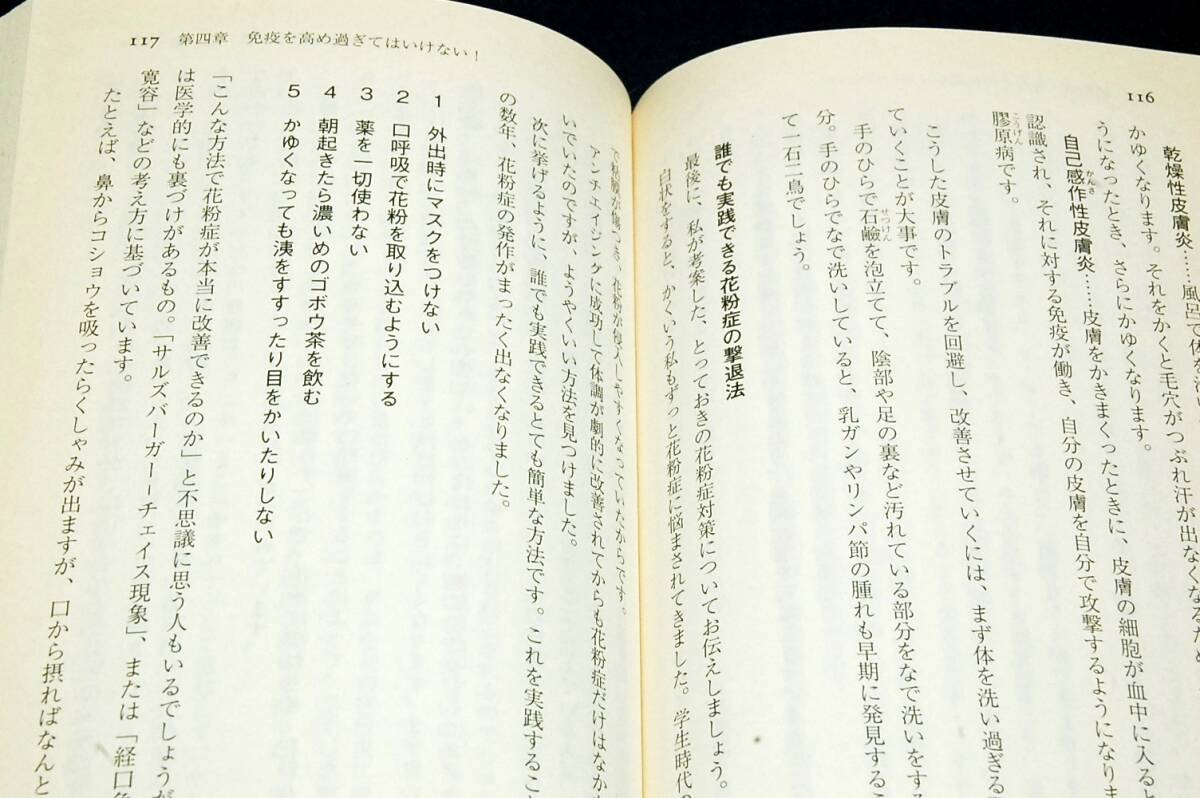 116
乾燥性皮膚炎……風呂で体を
かゆくなります。それをかくと毛穴がつぶれ汗が出なくなるため
うになったとき、さらにかゆくなります。
自己感作性皮膚炎……皮膚をかきまくったときに、皮膚の細胞が血中に入ると
認識され、それに対する免疫が働き、自分の皮膚を自分で攻撃するようになりま
膠原病です。
こうした皮膚のトラブルを回避し、改善させていくには、まず体を洗い過ぎる
ていくことが大事です。
手のひらで石鹼を泡立てて、陰部や足の裏など汚れている部分をなで洗いをする
分。手のひらでなで洗いしていると、乳ガンやリンパ節の腫れも早期に発見するこ
て一石二鳥でしょう。
誰でも実践できる花粉症の撃退法
最後に、私が考案した、とっておきの花粉症対策についてお伝えしましょう。
白状をすると、かくいう私もずっと花粉症に悩まされてきました。学生時代の
117 第四章 免疫を高め過ぎてはいけない!
で粘膜が傷つき、花粉が侵入しやすくなっていたからです。
アンチエイジングに成功して体調が劇的に改善されてからも花粉症だけはなか
いでいたのですが、ようやくいい方法を見つけました。
次に挙げるように、誰でも実践できるとても簡単な方法です。これを実践するこ
の数年、花粉症の発作がまったく出なくなりました。
1 外出時にマスクをつけない
2 口呼吸で花粉を取り込むようにする
3 薬を一切使わない
4 朝起きたら濃いめのゴボウ茶を飲む
5 かゆくなっても洟をすすったり目をかいたりしない
「こんな方法で花粉症が本当に改善できるのか」と不思議に思う人もいるでしょうが
は医学的にも裏づけがあるもの。「サルズバーガーーチェイス現象」、または「経口免
寛容」などの考え方に基づいています。
たとえば、鼻からコショウを吸ったらくしゃみが出ますが、口から摂ればなんと